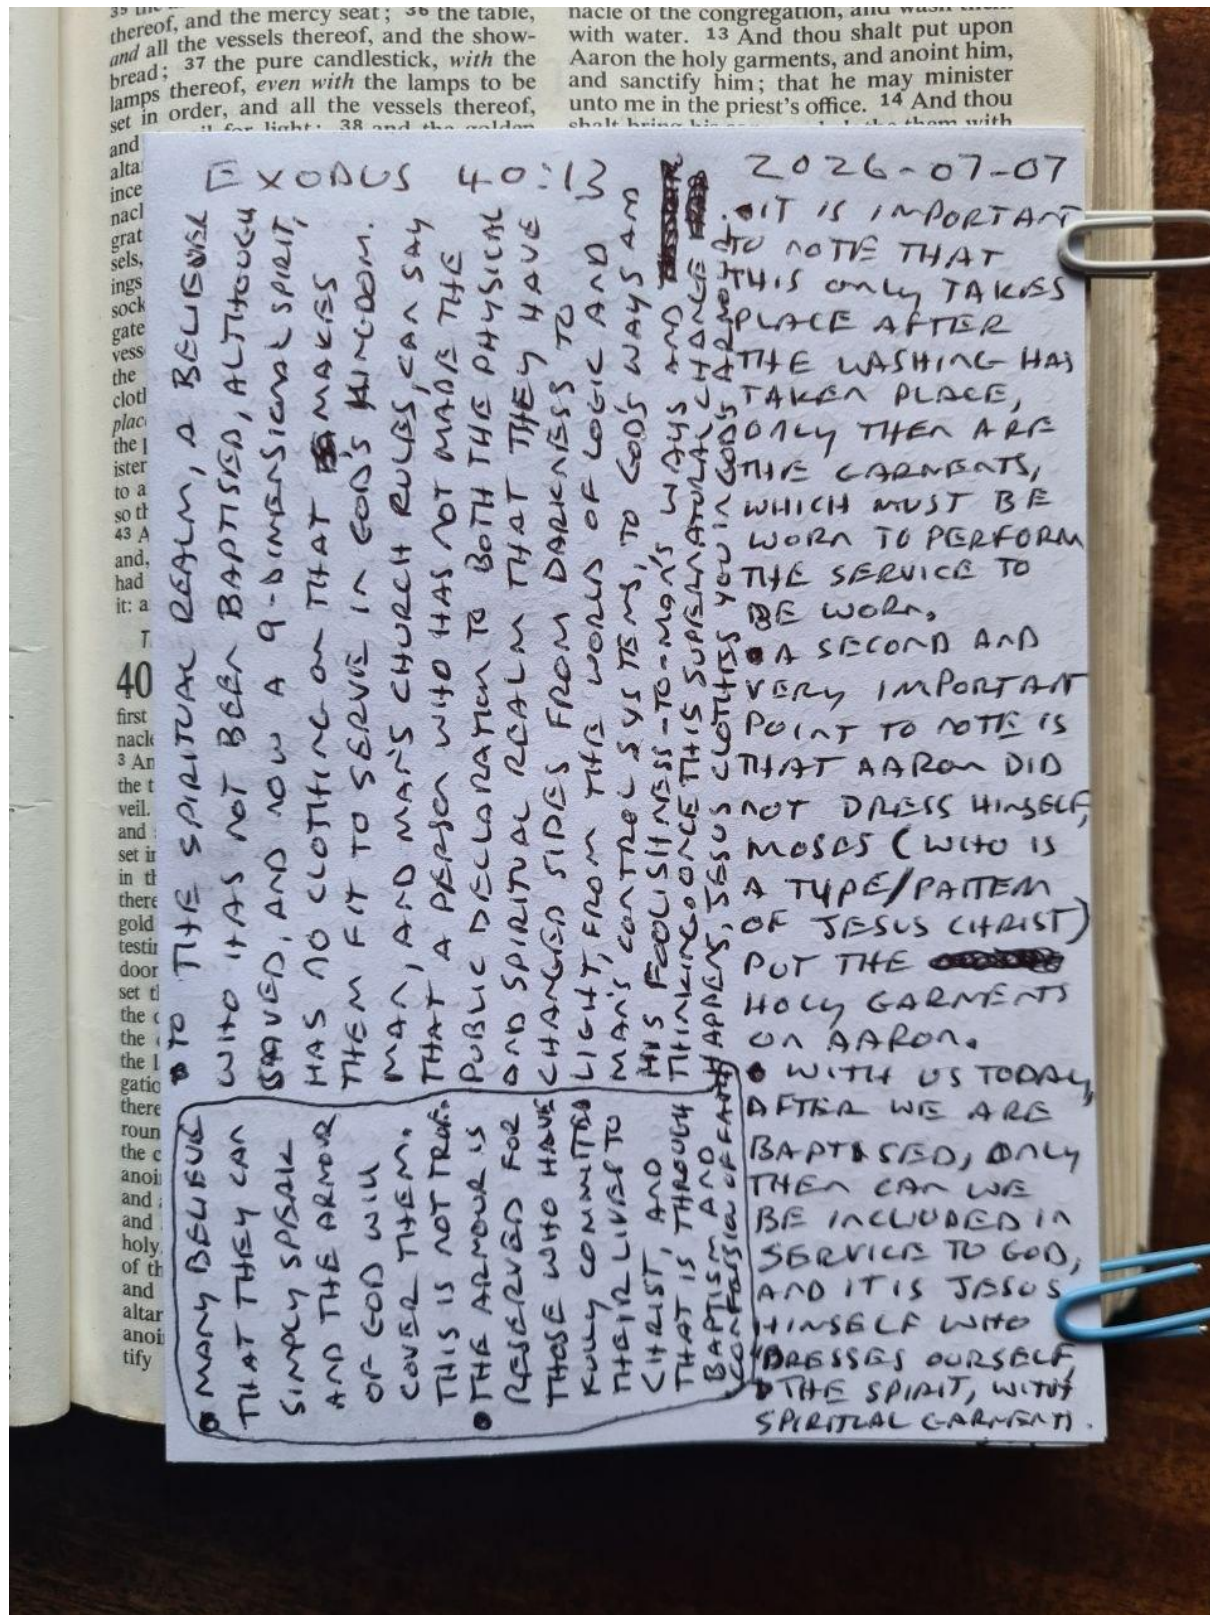 thereof, and the mercy seat; 36 the table,
and all the vessels thereof, and the show-
bread; 37 the pure candlestick, with the
lamps thereof, even with the lamps to be
set in order, and all the vessels thereof,
nacle of the congregation, and wash them
with water. 13 And thou shalt put upon
Aaron the holy garments, and anoint him,
and sanctify him; that he may minister
unto me in the priest's office. 14 And thou
and
alta
ince
nacl
grat
sels,
ings
sock
gate
vess
the
clotl
plac
the p
ister
to a
so th
43 A
and,
had
it: a
T
40
first
nacle
3 An
the t
veil.
and
set in
in th
there
gold
testin
door
set t
the c
the
the l
gatio
there
roun
the c
anoi
and
and
holy
of th
and
altar
anoi
tify
EXODUS 40:13
2026-07-07
• IT IS IMPORTANT
TO NOTE THAT
THIS ONLY TAKES
PLACE AFTER
THE WASHING HAS
TAKEN PLACE,
ONLY THEN ARE
THE GARMENTS,
WHICH MUST BE
WORN TO PERFORM
THE SERVICE TO
BE WORN.
• A SECOND AND
VERY IMPORTANT
POINT TO NOTE IS
THAT AARON DID
NOT DRESS HIMSELF,
MOSES (WHO IS
A TYPE/PATTERN
OF JESUS CHRIST)
PUT THE
HOLY GARMENTS
ON AARON.
• WITH US TODAY,
AFTER WE ARE
BAPTISED, ONLY
THEN CAN WE
BE INCLUDED IN
SERVICE TO GOD,
AND IT IS JESUS
HIMSELF WHO
DRESSES OURSELF,
THE SPIRIT, WITH
SPIRITUAL GARMENTS.
• TO THE SPIRITUAL REALM, A BELIEVER
WHO HAS NOT BEEN BAPTISED, ALTHOUGH
SAVED, AND NOW A 9-DIMENSIONAL SPIRIT,
HAS NO CLOTHING ON THAT MAKES
THEM FIT TO SERVE IN GOD'S KINGDOM.
MAN, AND MAN'S CHURCH RULES, CAN SAY
THAT A PERSON WHO HAS NOT MADE THE
PUBLIC DECLARATION TO BOTH THE PHYSICAL
AND SPIRITUAL REALM THAT THEY HAVE
CHANGED SIDES FROM DARKNESS TO
LIGHT, FROM THE WORLD OF LOGIC AND
MAN'S CONTROL SYSTEMS, TO GOD'S WAYS AND
HIS FOOLISHNESS-TO-MAN'S WAYS AND
THINKING. ONCE THIS SUPERNATURAL CHANGE
HAPPENS, JESUS CLOTHES YOU IN GOD'S ARMOUR.
• MANY BELIEVE
THAT THEY CAN
SIMPLY SPEAK
AND THE ARMOUR
OF GOD WILL
COVER THEM.
THIS IS NOT TRUE.
• THE ARMOUR IS
RESERVED FOR
THOSE WHO HAVE
FULLY COMMITTED
THEIR LIVES TO
CHRIST, AND
THAT IS THROUGH
BAPTISM AND
CONFESSION OF FAITH